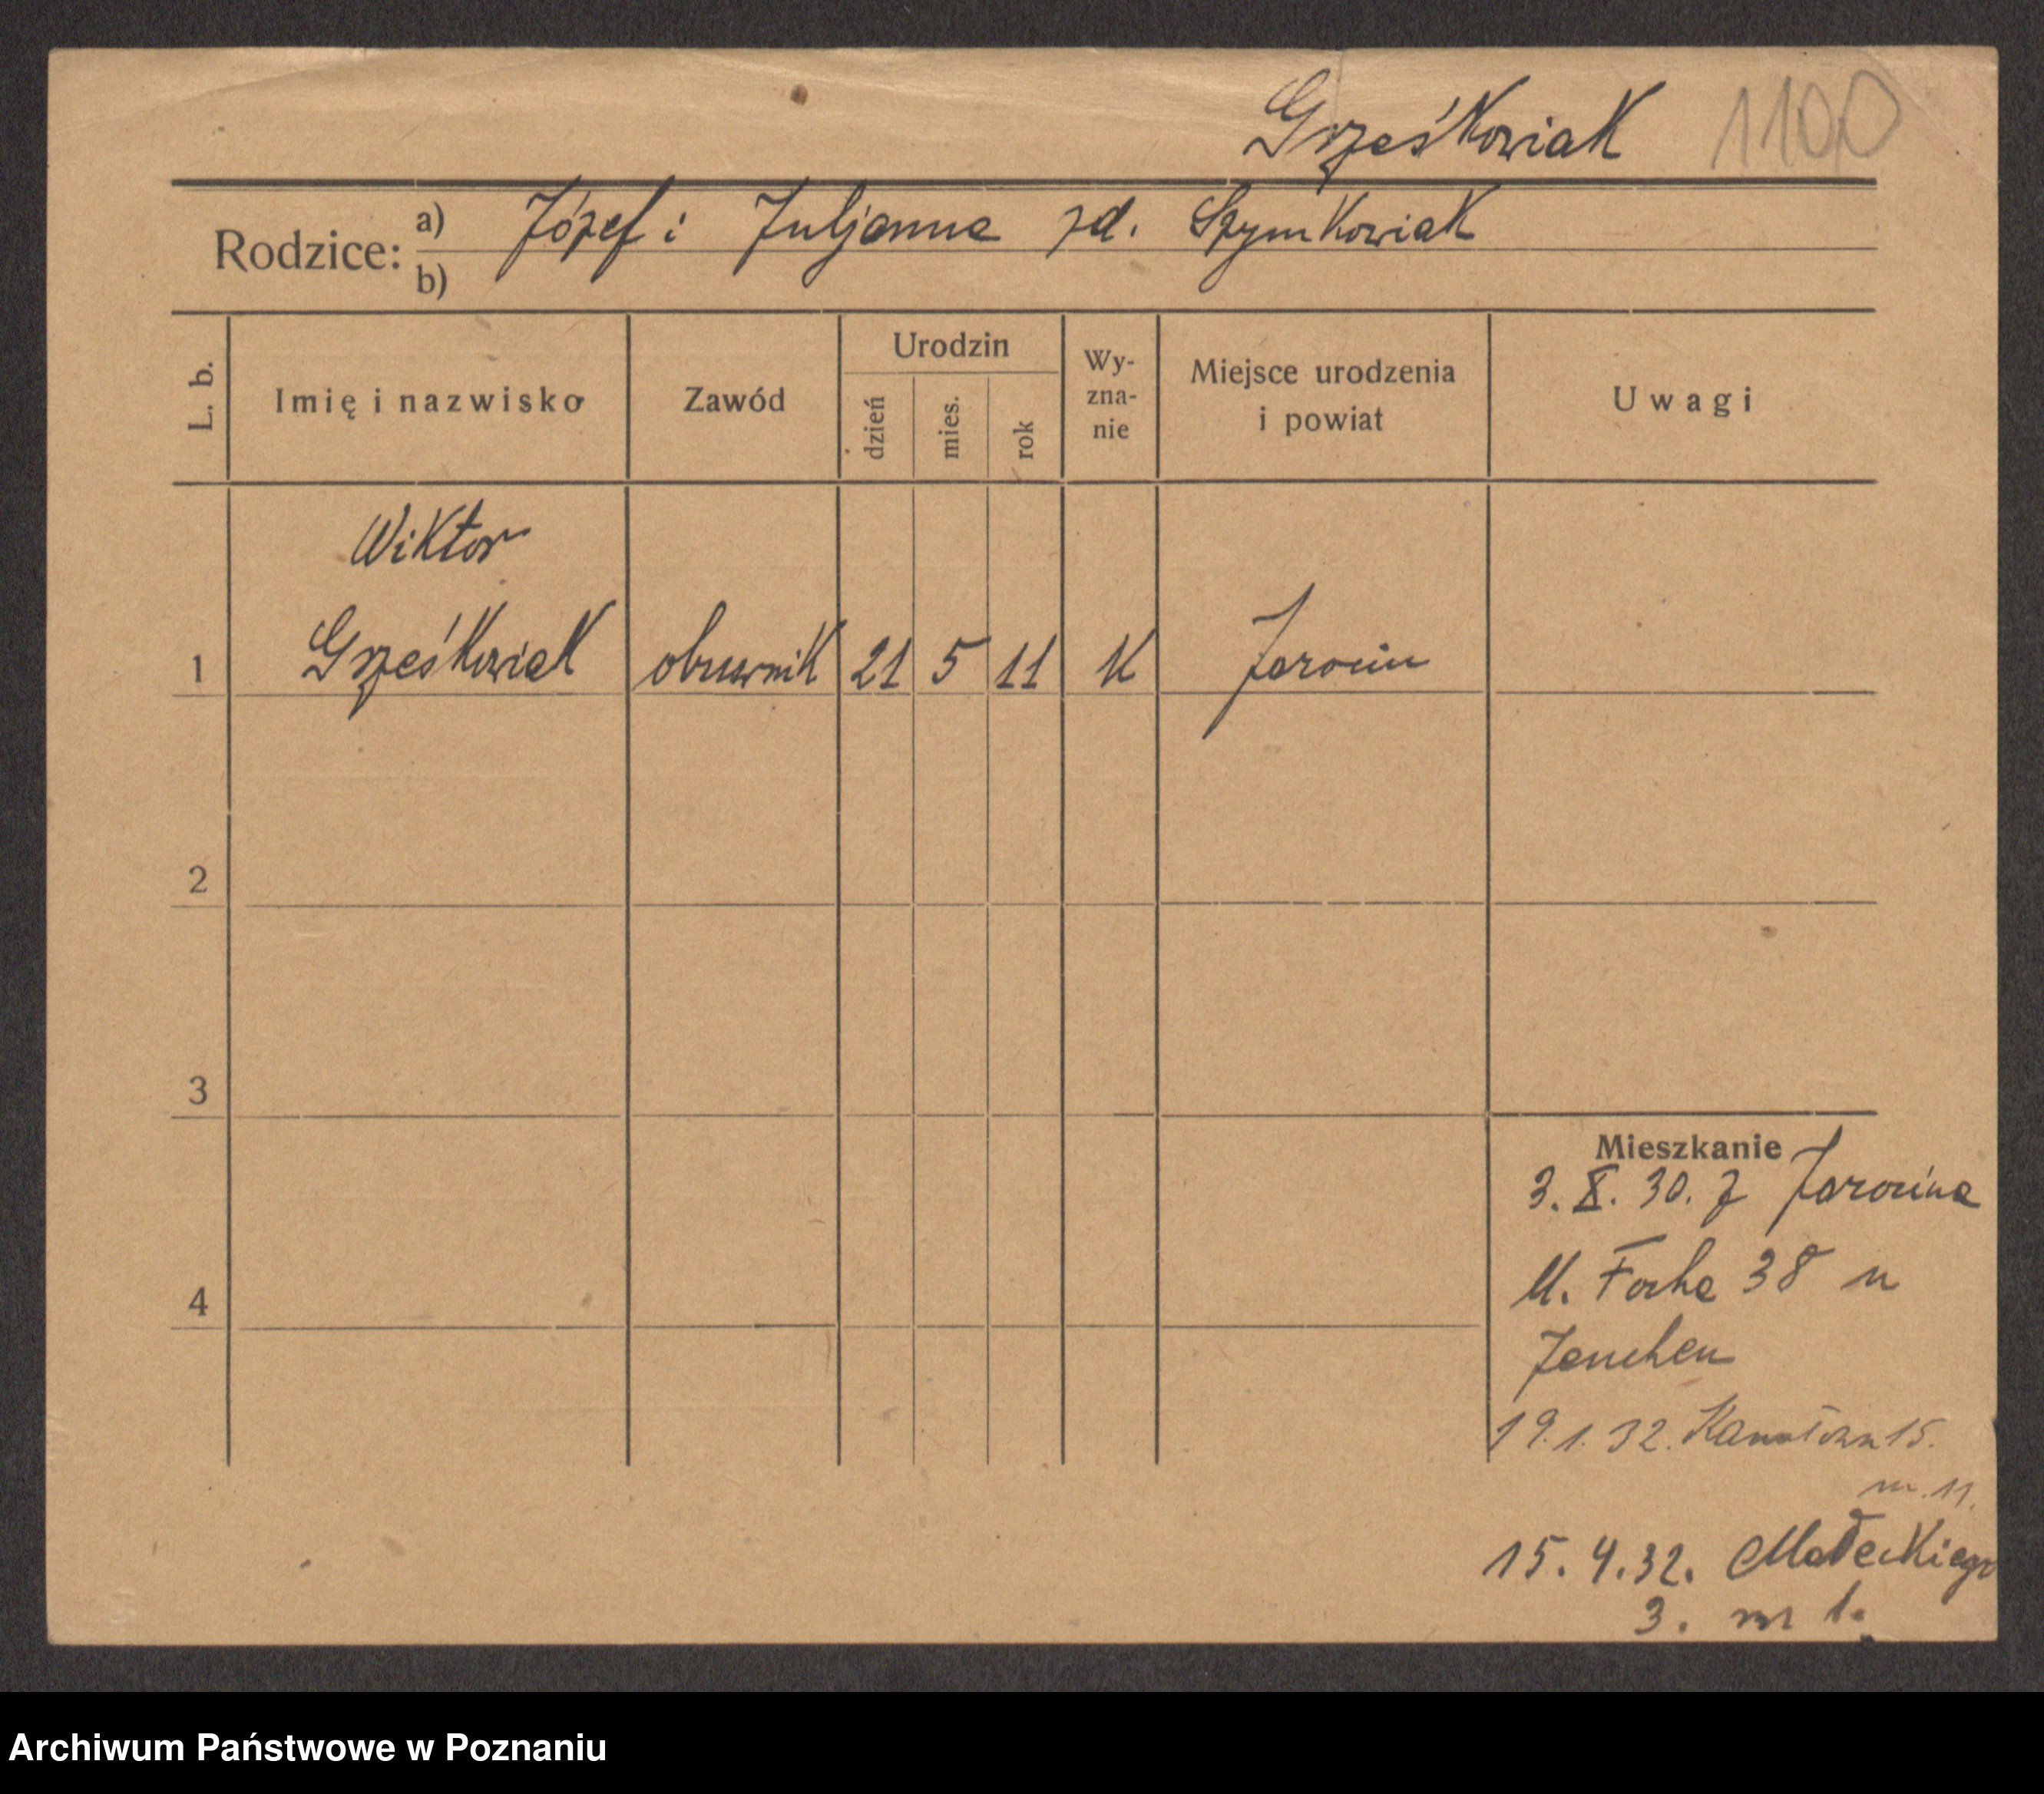 Grześkowiak 1100
Rodzice: a) Józef i Juljanna zd. Szymkowiak
b)
L. b. Imię i nazwisko Zawód Urodzin dzień mies. rok Wy-zna-nie Miejsce urodzenia i powiat Uwagi
Wiktor
1 Grześkowiak obuwnik 21 5 11 K Jarocin
2
3
Mieszkanie
3. X. 30. z Jarocina
M. Focha 38 u
4
19.1.32. 15.
m. 11.
15.4.32. Małeckiego
3. m 1.
Archiwum Państwowe w Poznaniu